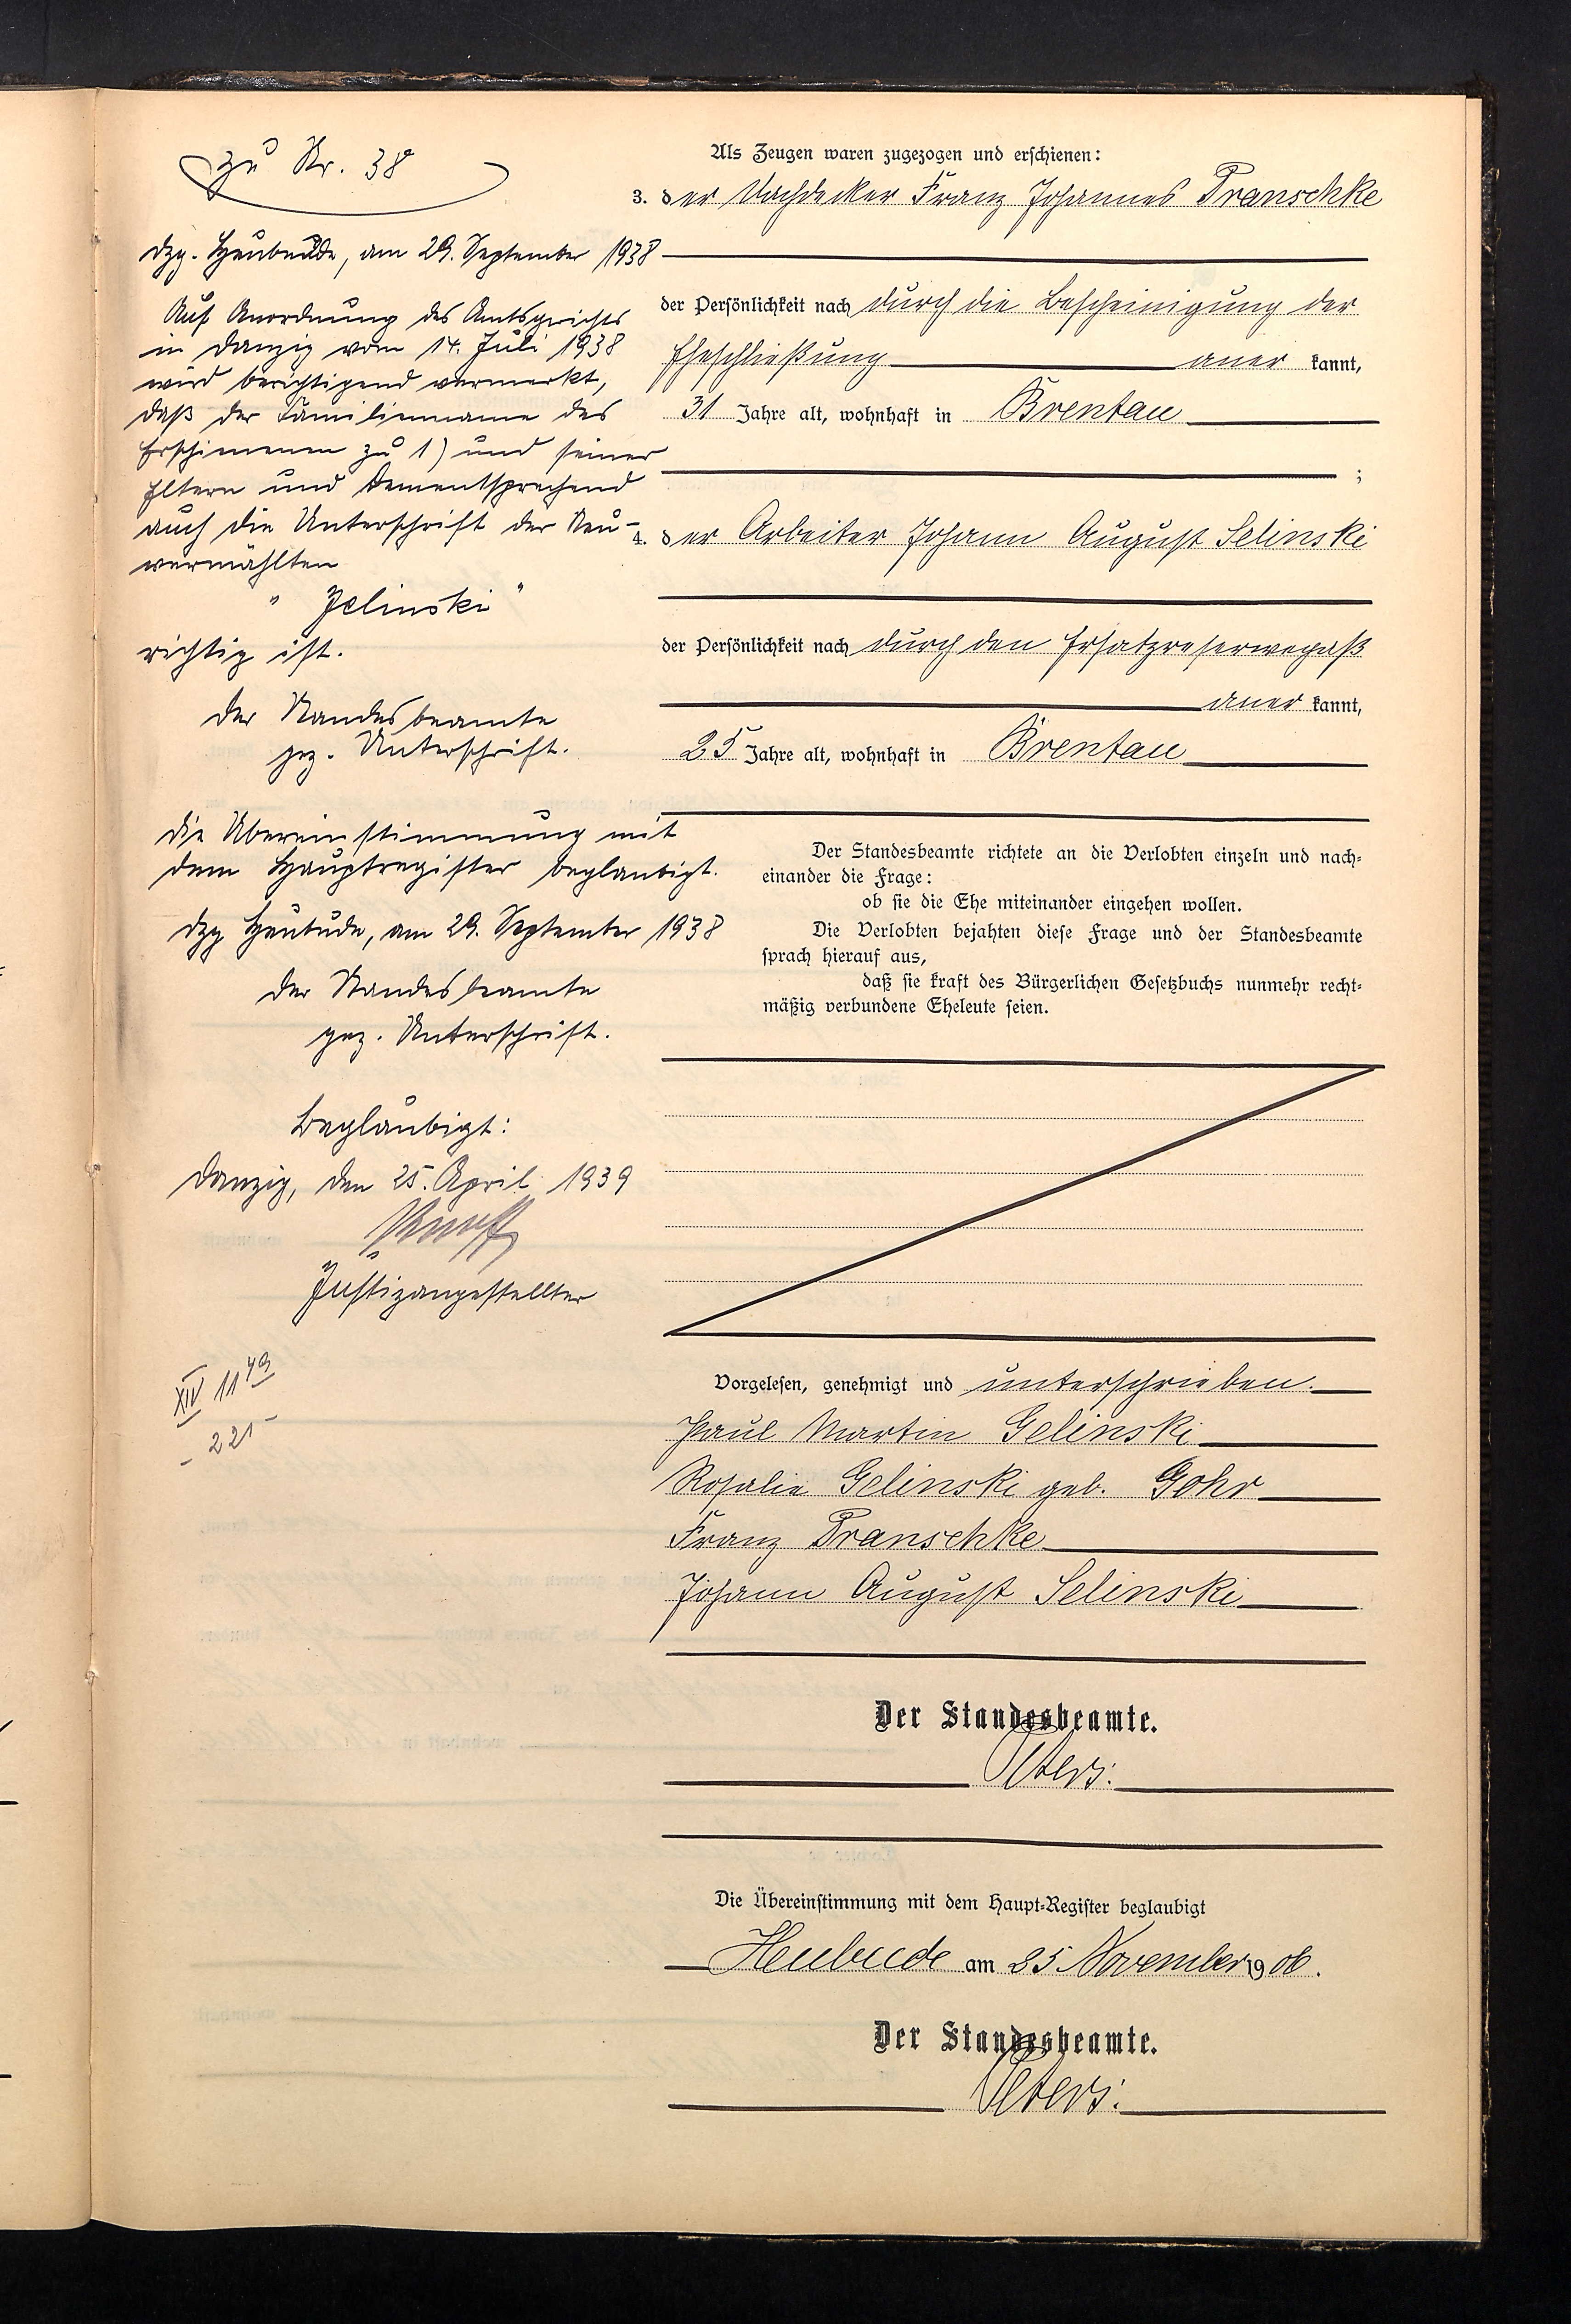 zu Nr. 38
Dzg. Heubude, am 29. September 1938
Auf Anordnung des Amtsgerichts
in Danzig vom 14. Juli 1938
wird berichtigend vermerkt,
daß der Familienname des
Erschienenen zu 1) und seiner
Eltern und dementsprechend
auch die Unterschrift der Neu-
vermählten
" Jelinski "
richtig ist.
Der Standesbeamte
gez. Unterschrift.
Die Übereinstimmung mit
dem Hauptregister beglaubigt.
Dzg Heubude, am 29. September 1938
Der Standesbeamte
gez. Unterschrift.
Beglaubigt:
Danzig, den 25. April 1939
Justizangestellter
XIV 11 49
- 221 -
Als Zeugen waren zugezogen und erschienen:
3. der Dachdecker Franz Johannes Pranschke
der Persönlichkeit nach durch die Bescheinigung der
Eheschließung aner kannt,
31 Jahre alt, wohnhaft in Brentau
;
4. der Arbeiter Johann August Selinski
der Persönlichkeit nach durch den Ersatzreservepaß
aner kannt,
25 Jahre alt, wohnhaft in Brentau
Der Standesbeamte richtete an die Verlobten einzeln und nach-
einander die Frage:
ob sie die Ehe miteinander eingehen wollen.
Die Verlobten bejahten diese Frage und der Standesbeamte
sprach hierauf aus,
daß sie kraft des Bürgerlichen Gesetzbuchs nunmehr recht-
mäßig verbundene Eheleute seien.
Vorgelesen, genehmigt und unterschrieben.
Paul Martin Gelinski
Rosalie Gelinski geb. Gohr
Franz Pranschke
Johann August Selinski
Der Standesbeamte.
Peters.
Die Übereinstimmung mit dem Haupt-Register beglaubigt
Heubude am 25 November 1906.
Der Standesbeamte.
Peters.